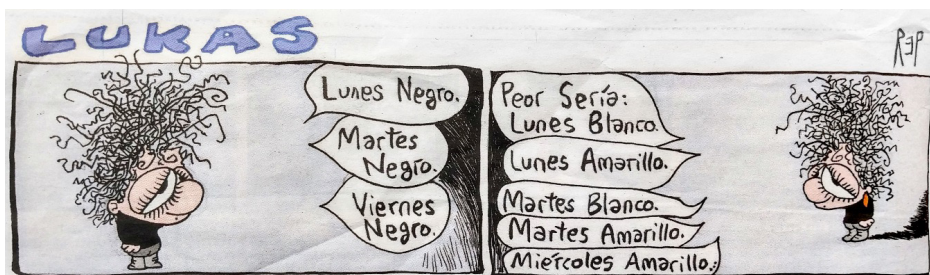 LUKAS
REP
Lunes Negro.
Martes
Negro.
Viernes
Negro.
Peor Sería:
Lunes Blanco.
Lunes Amarillo.
Martes Blanco.
Martes Amarillo.
Miércoles Amarillo.